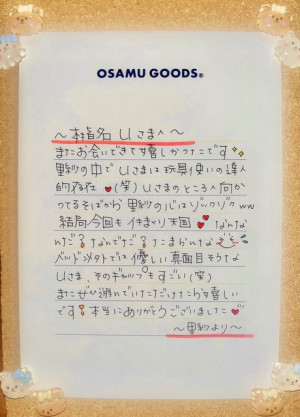 OSAMU GOODS®
～本指名 Uさまへ～
またお会いできて嬉しかったです
里紗の中でUさまは玩具使いの達人
的存在(笑)Uさまのところへ向か
ってるそばから里紗の心はゾックゾクww
結局今回もイキまくり天国
なんで?たまらんな
ベッド以外では優しい真面目そうな
Uさま、そのギャップもすごい(笑)
またぜひ遊んでいただけたら嬉しい
です!本当にありがとうございました
～里紗より～